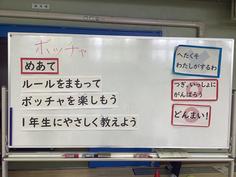 ボッチャ
めあて
ルールをまもって
ボッチャを楽しもう
1年生にやさしく教えよう
へたくそ
わたしがするわ
つぎ、いっしょに
がんばろう
どんまい!